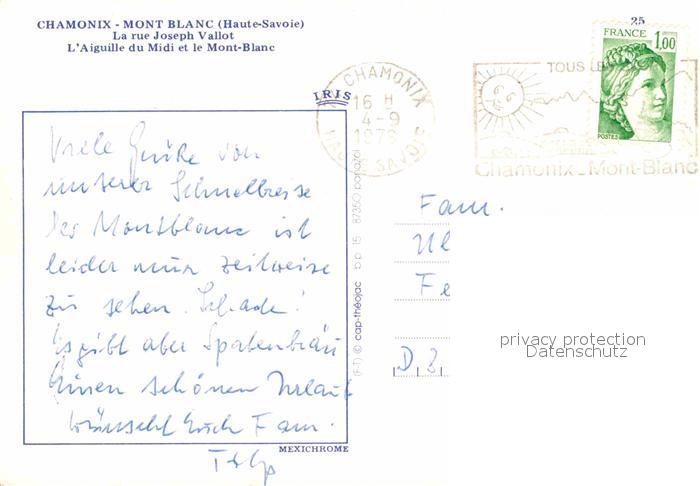 CHAMONIX - MONT BLANC (Haute-Savoie)
La rue Joseph Vallot
L'Aiguille du Midi et le Mont-Blanc
IRIS
Viele Grüße von
unserer Schnellreise
Der Montblanc ist
leider nur zeitweise
zu sehen. Schade!
Es gibt aber Spatenbräu
Einen schönen Urlaub
wünscht Euch Fam.
MEXICHROME
(F-T) © cap-théojac b.p. 15 87350 panazol
CHAMONIX
16 H
4-9
HAUTE-SAVOIE
TOUS LE
Chamonix_Mont-Blanc
25
FRANCE 1,00
POSTES
Fam.
Ul
Fe
D
privacy protection
Datenschutz